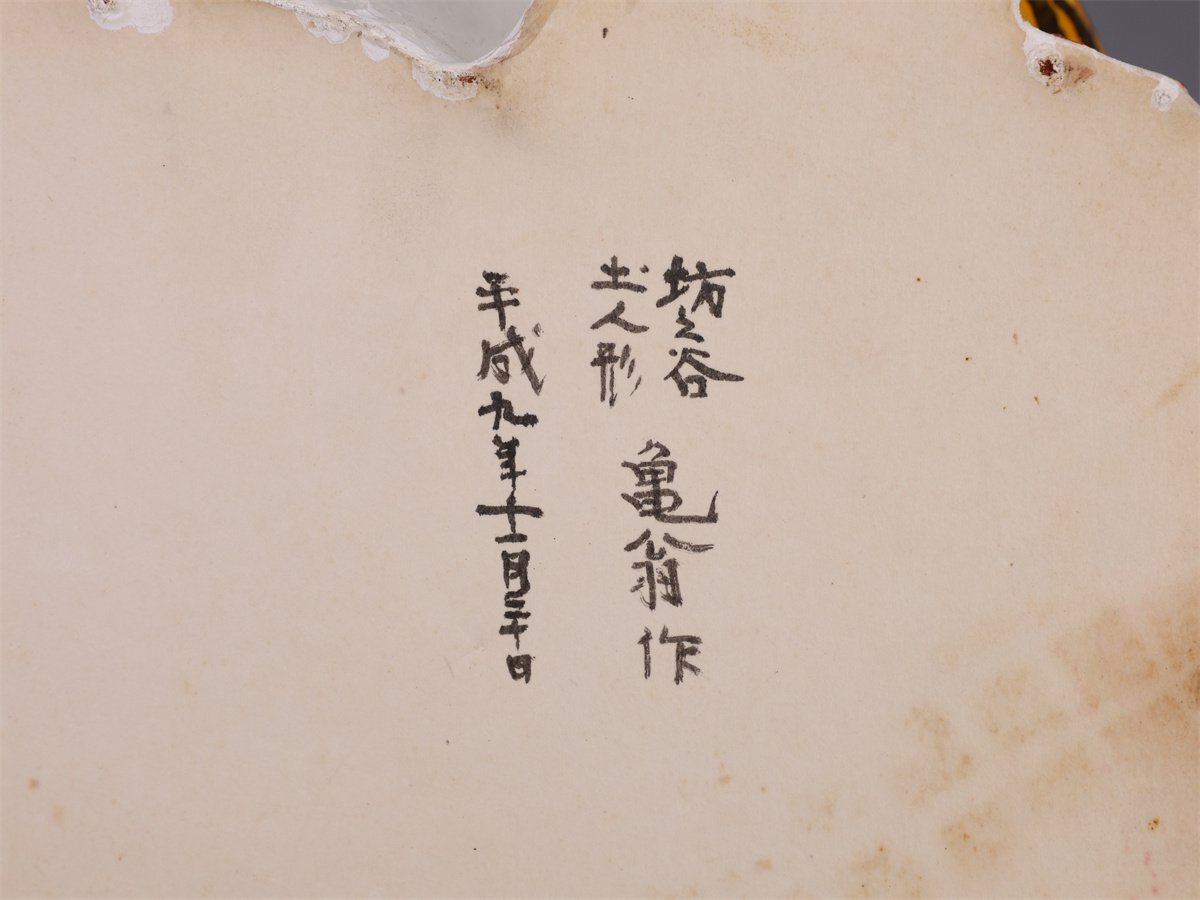 坊之谷
圡人形
亀翁作
平成九年十一月二十日